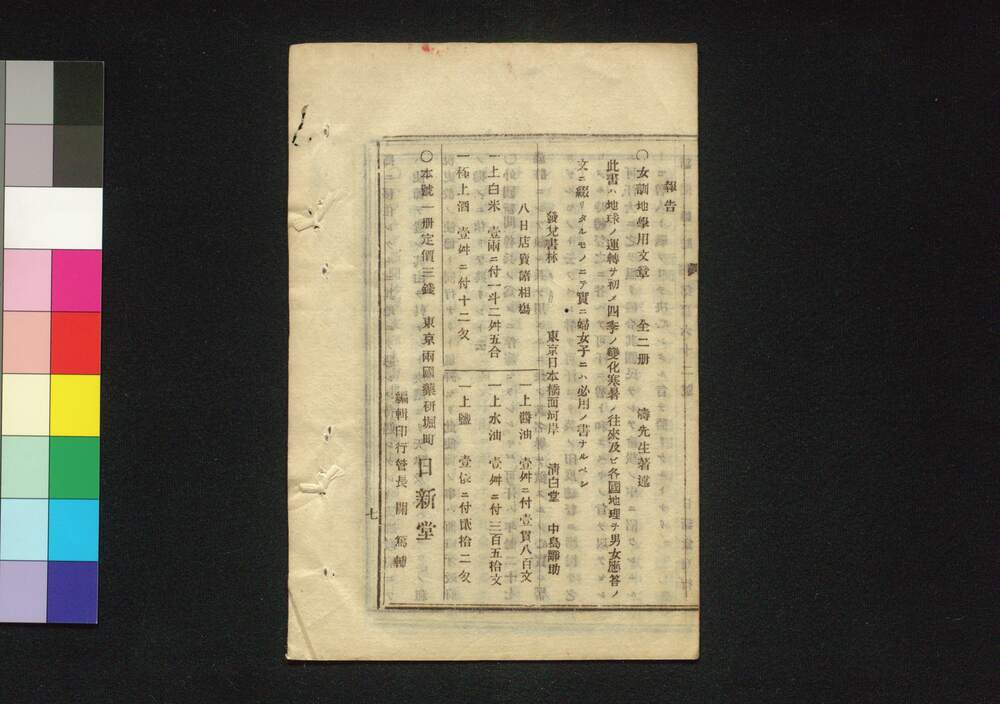 報告
〇女訓地學用文章 全二册 濤先生著述
此書ハ地球ノ運轉ヲ初メ四季ノ變化寒暑ノ往來及ビ各國地理ヲ男女應答ノ
文ニ綴リタルモノニテ實ニ婦女子ニハ必用ノ書ナルベシ
發兌書林 東京日本橋西河岸 清白堂 中島
八日店賣諸相塲
一上白米 壹兩ニ付一斗二舛五合
一極上酒 壹舛ニ付十二匁
一上醬油 壹舛ニ付壹貫八百文
一上水油 壹舛ニ付三百五拾文
一上鹽 壹俵ニ付貳拾二匁
〇本號一册定價三錢 東京兩國藥研堀町 日新堂
編輯印行曾長 關 篤輔
七